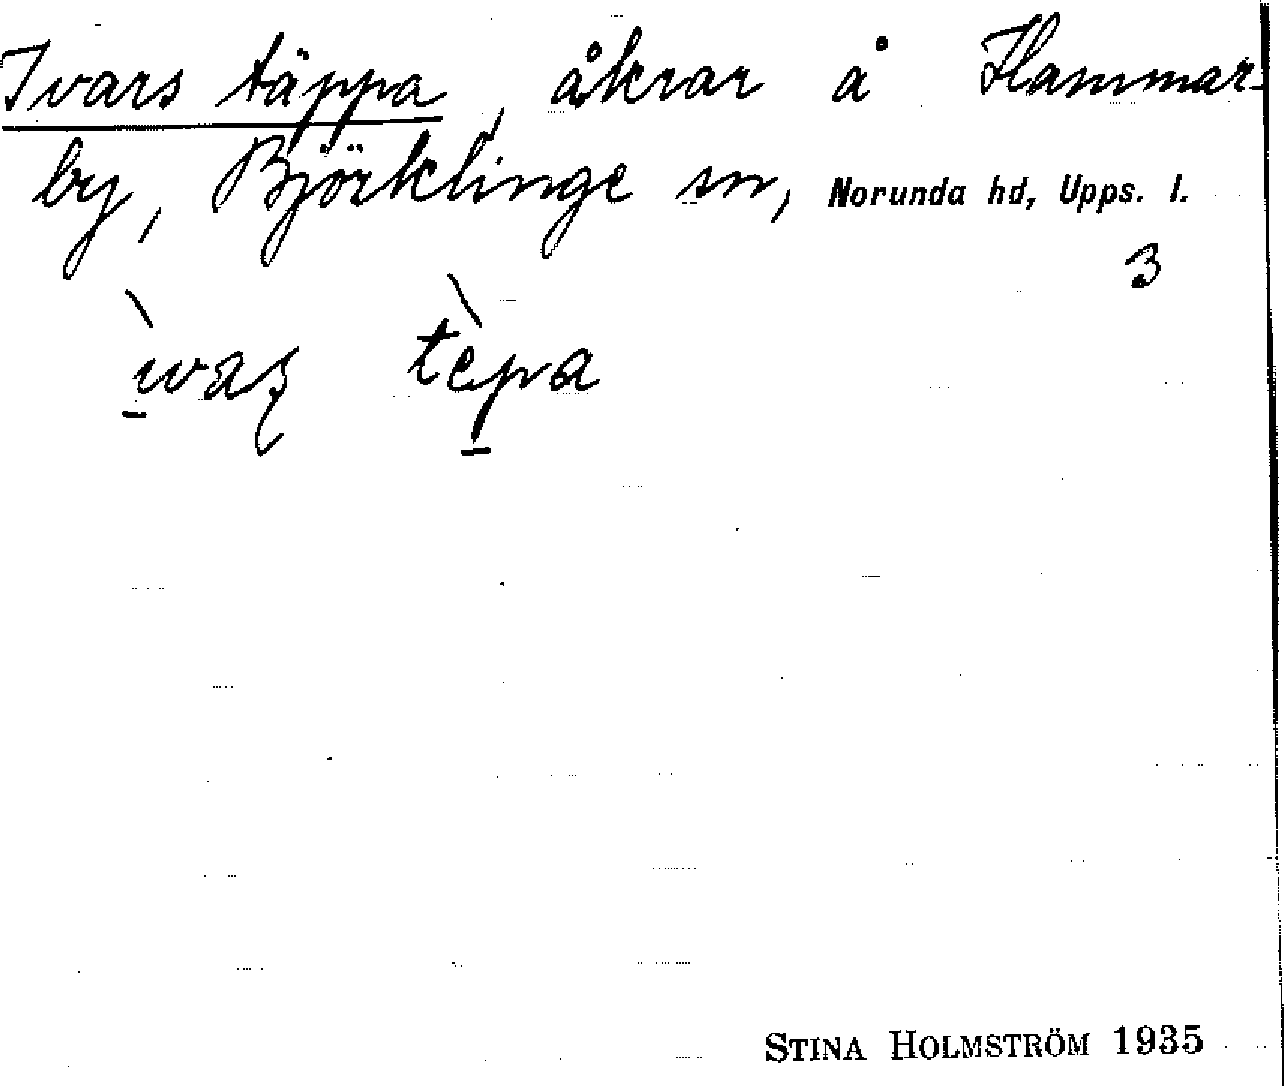 Ivars täppa, åkrar å Hammar-
by, Björklinge sn, Norunda hd, Upps. l.
3
STINA HOLMSTRÖM 1935